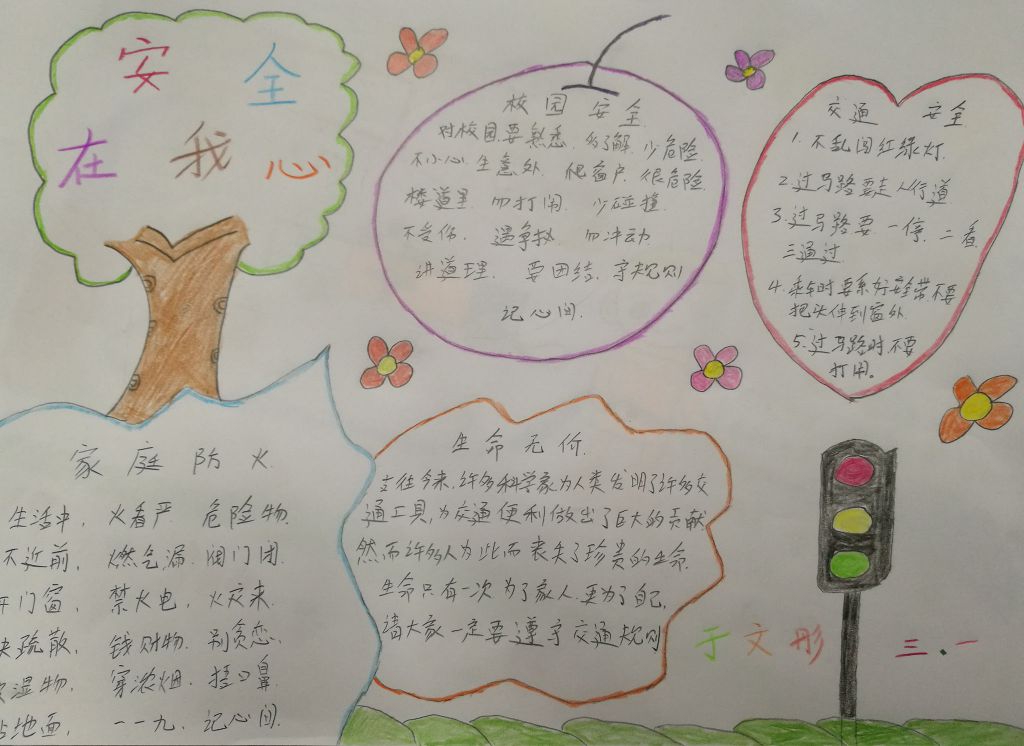 安全
在我心
校园安全
对校园,要熟悉,多了解,少危险.
不小心,生意外.爬窗户,很危险.
楼道里,勿打闹.少碰撞,
不受伤,遇争执,勿冲动
讲道理,要团结,守规则
记心间.
交通安全
1.不乱闯红绿灯.
2.过马路要走人行道
3.过马路要一停,二看,
三通过.
4.乘车时要系好安全带不要
把头伸到窗外.
5.过马路时,不要
打闹。
家庭防火
生活中,火看严.危险物.
不近前,燃气漏.阀门闭.
开门窗,禁火电,火灾来.
快疏散,钱财物.别贪恋.
湿物,穿浓烟.捂口鼻.
地面,一一九.记心间.
生命无价.
古往今来,许多科学家为人类发明了许多交
通工具,为交通便利做出了巨大的贡献
然而许多人为此而丧失了珍贵的生命.
生命只有一次为了家人.更为了自己,
请大家一定要遵守交通规则
于文彤 三.一